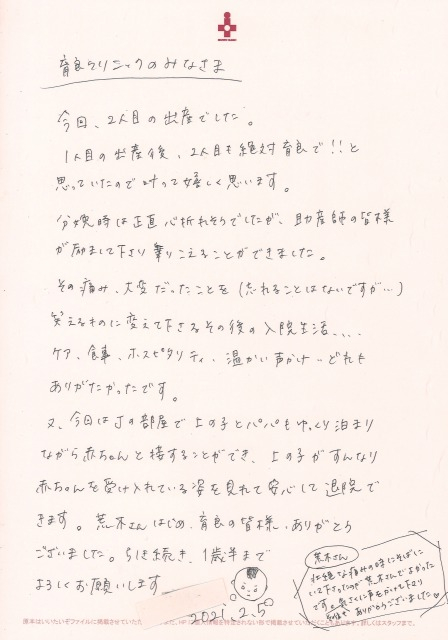 育良クリニックのみなさま
今回、2人目の出産でした。
1人目の出産後、2人目も絶対育良で!!と
思っていたので叶って嬉しく思います。
分娩時は正直心折れそうでしたが、助産師の皆様
が励まして下さり乗りこえることができました。
その痛み、大変だったことを(忘れることはないですが…)
笑えるものに変えて下さるその後の入院生活、、、
ケア、食事、ホスピタリティ、温かい声かけ…どれも
ありがたかったです。
又、今回はJの部屋で上の子とパパもゆっくり泊まり
ながら赤ちゃんと接することができ、上の子がすんなり
赤ちゃんを受け入れている姿を見れて安心して退院で
きます。荒木さんはじめ、育良の皆様、ありがとう
ございました。引き続き、1歳半まで
よろしくお願いします
2021.2.5
荒木さん
壮絶な痛みの時にそばに
いて下さったのが荒木さんでよかった
です。気さくに声をかけて下さり
ありがとうございました♡
原本はいいたいぞファイルに掲載させていただ